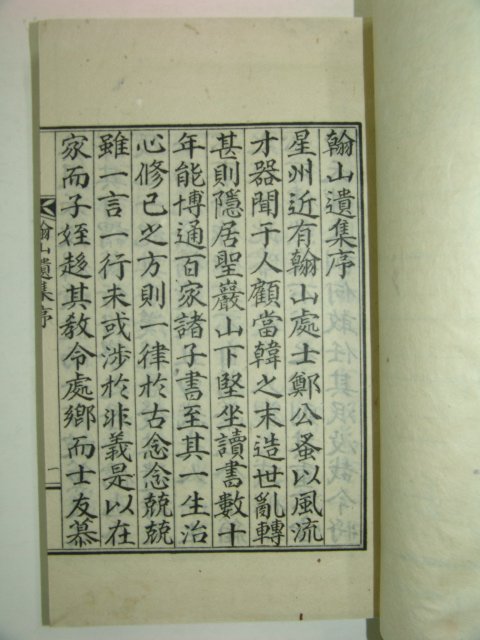 翰山遺集序
星州近有翰山處士鄭公蚤以風流
才器聞于人顧當韓之末造世亂轉
甚則隱居聖巖山下堅坐讀書數十
年能博通百家諸子書至其一生治
心修己之方則一律於古念念兢兢
雖一言一行未或涉於非義是以在
家而子姪趍其敎令處鄕而士友慕
翰山遺集序
一